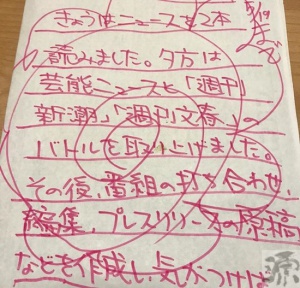 きょうはニュースを2本
5/19
まで
読みました。夕方は
芸能ニュースと「週刊
新潮」「週刊文春」の
バトルを取り上げました。
その後、番組の打ち合わせ、
編集、プレスリリースの原稿
などを作成し、気がつけば